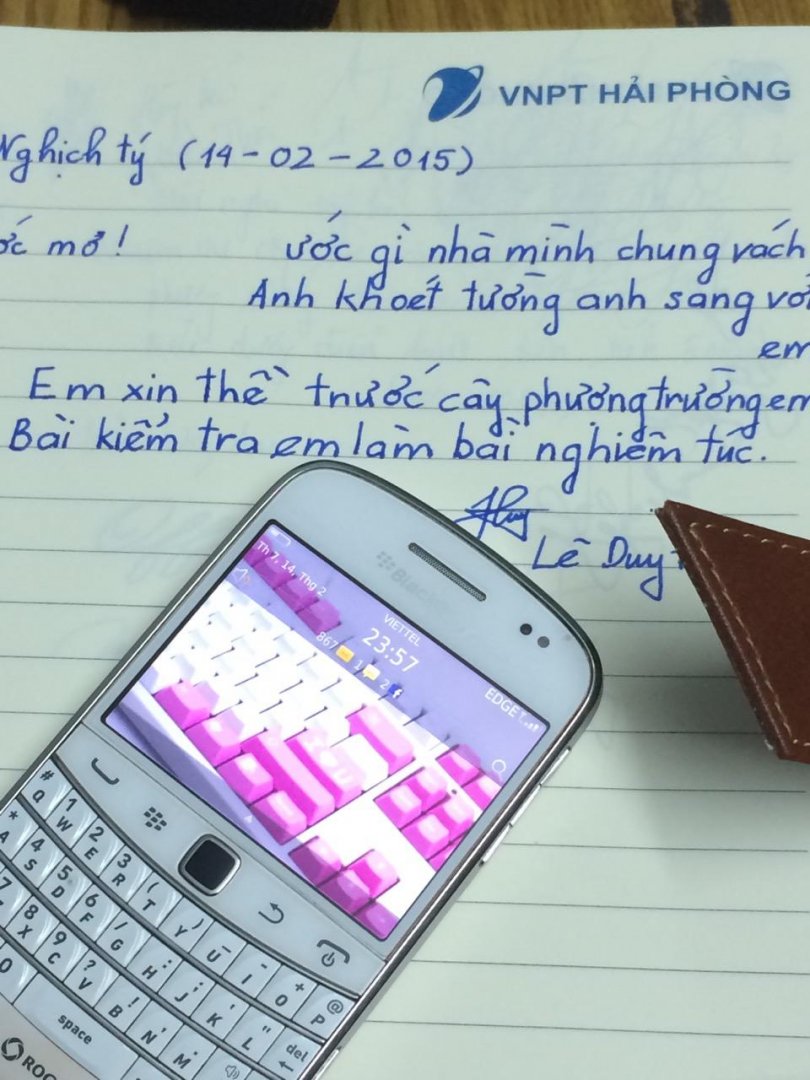 VNPT HẢI PHÒNG
Nghịch tý (14-02-2015)
mơ! ước gì nhà mình chung vách
Anh khoét tường anh sang với
em
Em xin thề trước cây phượng trường em
Bài kiểm tra em làm bài nghiêm túc.
Lê Duy
Th 7, 14, Thg 2
VIETTEL
23:57
EDGE
867 1 2
# Q 1 W 2 E 3 R ( T ) Y _ U - I + O @ P
* A 4 S 5 D 6 F / G : H ; J ' K " L del
7 8 X 9 C ? V ! B , N . M
0 space